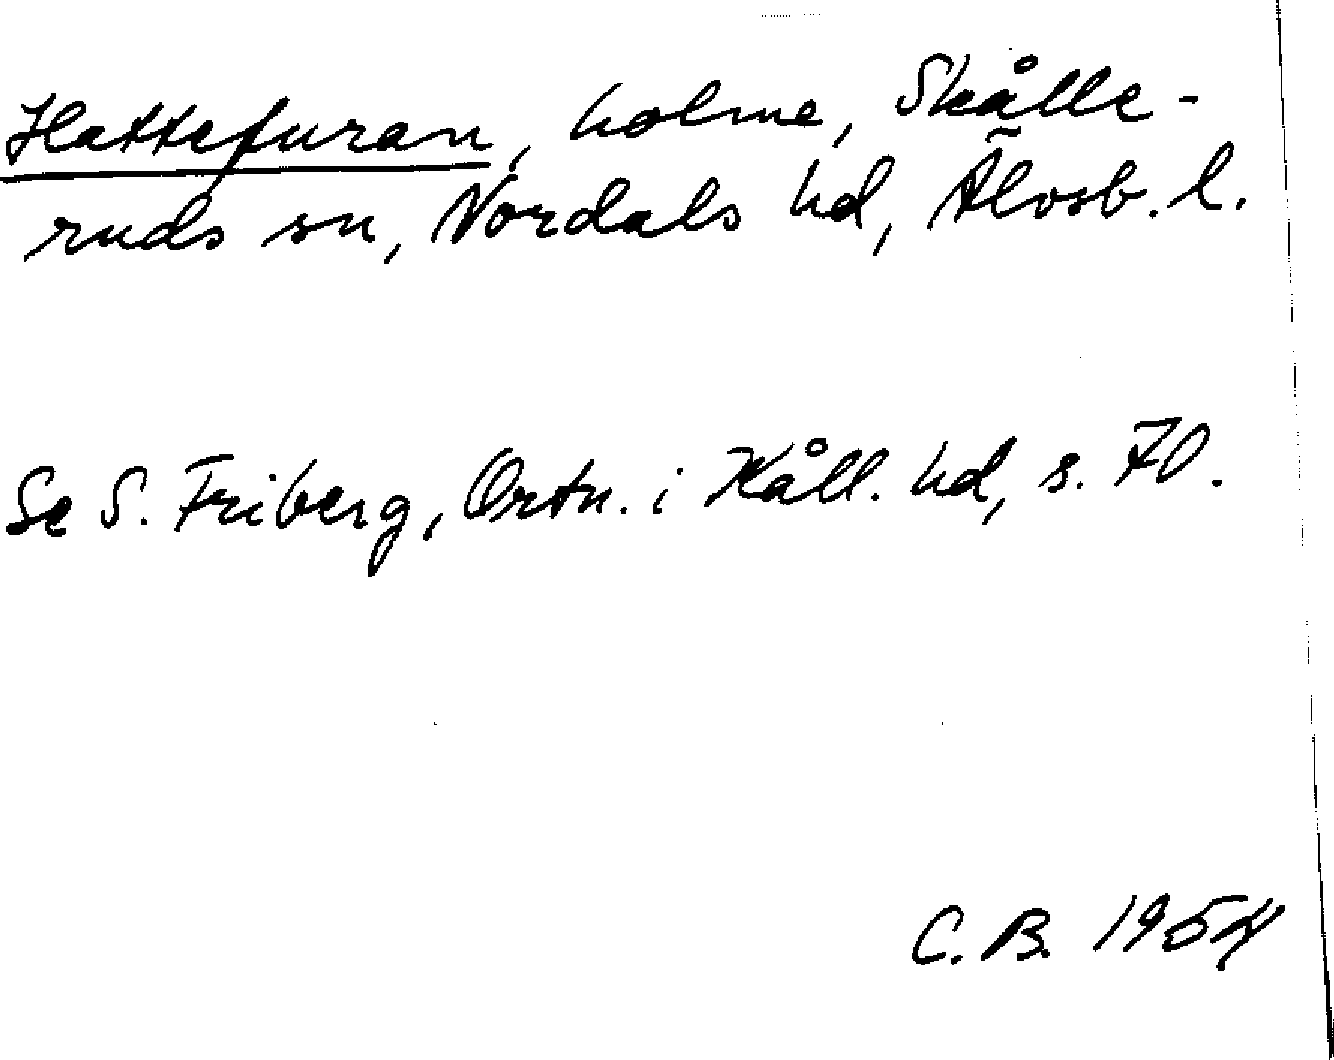 Hattefuran, holme, Skålle-
ruds sn, Nordals hd, Älvsb. l.
Se S. Friberg, Ortn. i Kåll. hd, s. 70.
C. B. 1954